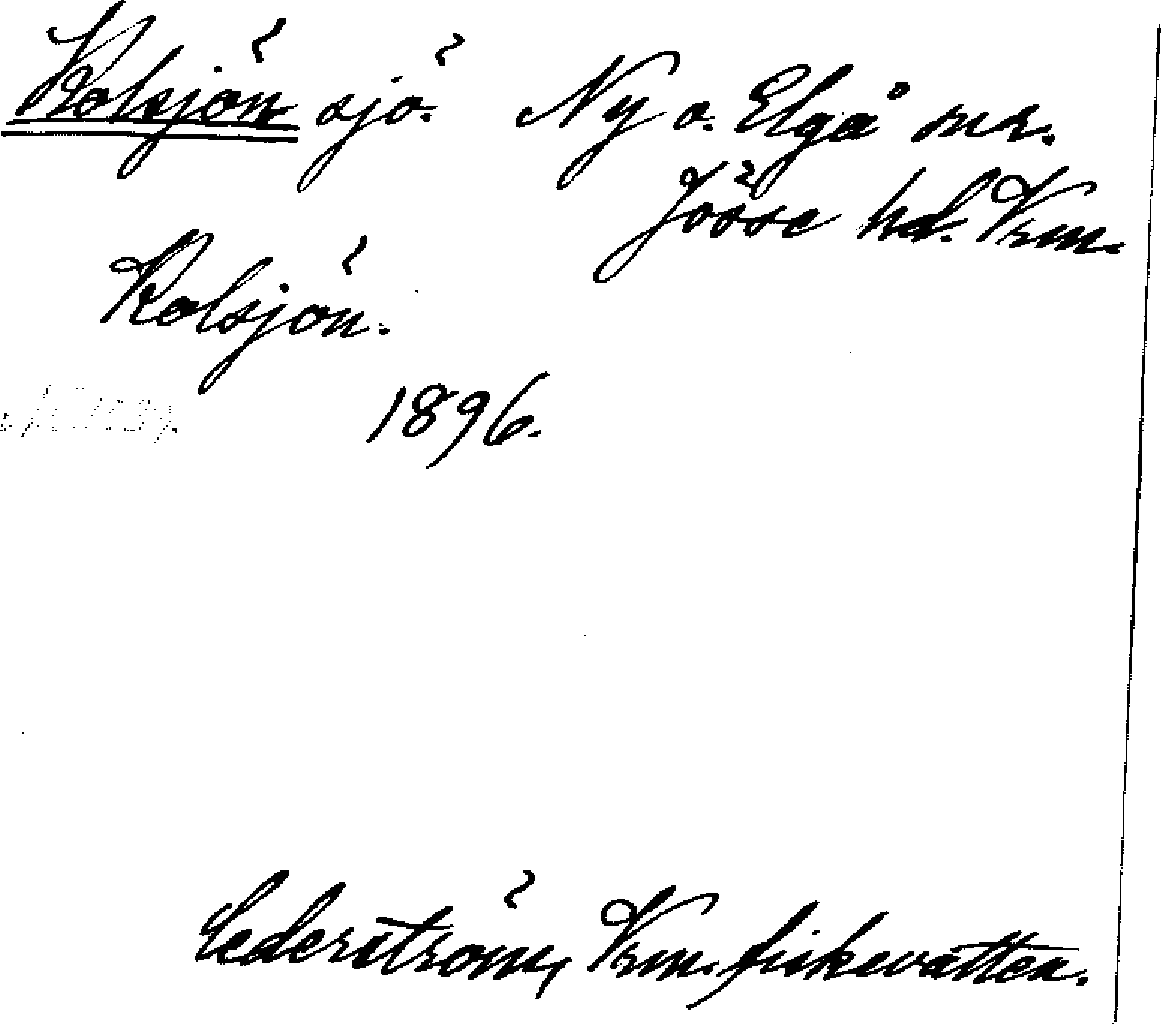 Kolsjön sjö. Ny o. Elgå snr.
Jösse hd. Vrm.
Kolsjön.
1896.
Cederström, Vrm. fiskevatten.